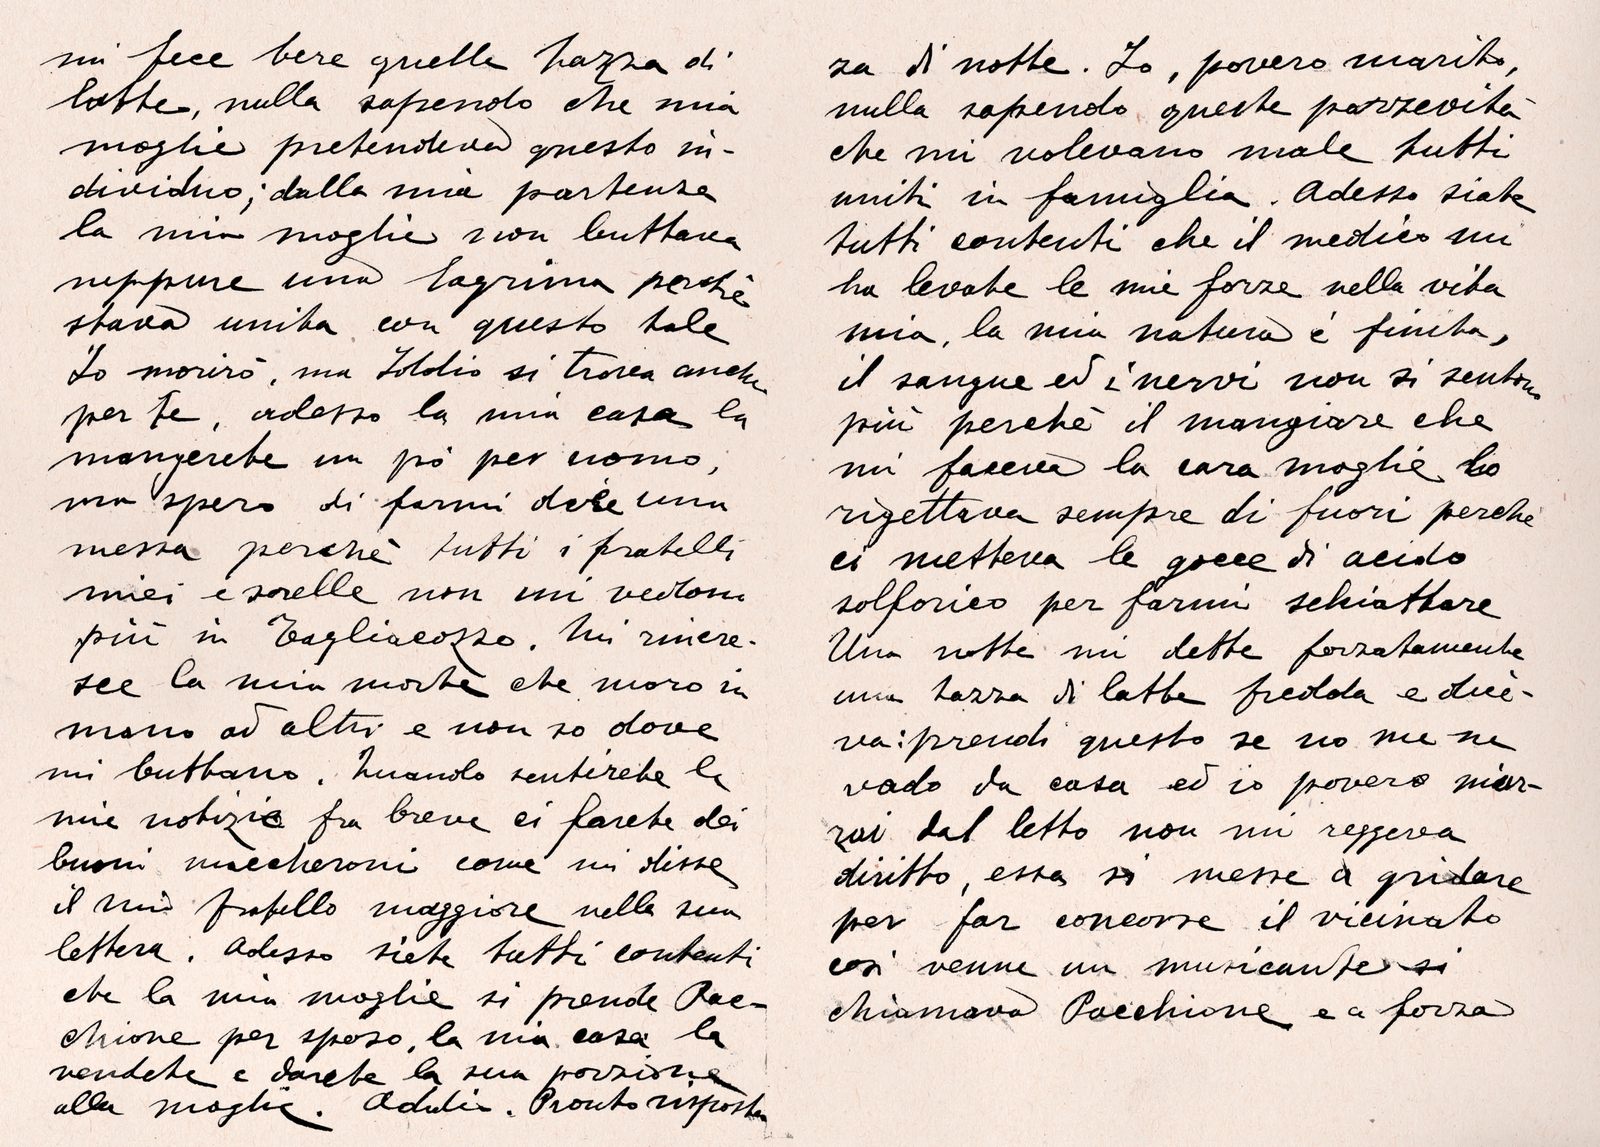 mi fece bere quella tazza di
latte, nulla sapendo che mia
moglie pretendeva questo in-
dividuo; dalla mia partenza
la mia moglie non buttava
neppure una lagrima perchè
stava unita con questo tale
Io morirò, ma Iddio si trova anche
per te, adesso la mia casa la
mangerete un pò per uomo,
ma spero di farmi dire una
messa perchè tutti i fratelli
miei e sorelle non mi vedono
più in Tagliacozzo. Mi rincre-
sce la mia morte che moro in
mano ad altri e non so dove
mi buttano. Quando sentirete le
mie notizie fra breve ci farete dei
buoni maccheroni come mi disse
il mio fratello maggiore nella sua
lettera. Adesso siete tutti contenti
che la mia moglie si prende Pac-
chione per sposo, la mia casa la
vendete e darete la sua porzione
alla moglie. Addio. Pronto risposta
za di notte. Io, povero marito,
nulla sapendo queste
che mi volevano male tutti
uniti in famiglia. Adesso siate
tutti contenti che il medico mi
ha levate le mie forze nella vita
mia, la mia natura é finita,
il sangue ed i nervi non si sentono
più perchè il mangiare che
mi faceva la cara moglie lo
rigettava sempre di fuori perchè
ci metteva le gocce di acido
solforico per farmi schiattare
Una notte mi dette forzatamente
una tazza di latte fredda e dice-
va: prendi questo se no me ne
vado da casa ed io povero
dal letto non mi reggeva
diritto, essa si messe a gridare
per far concorre il vicinato
così venne un musicante si
chiamava Pacchione e a forza